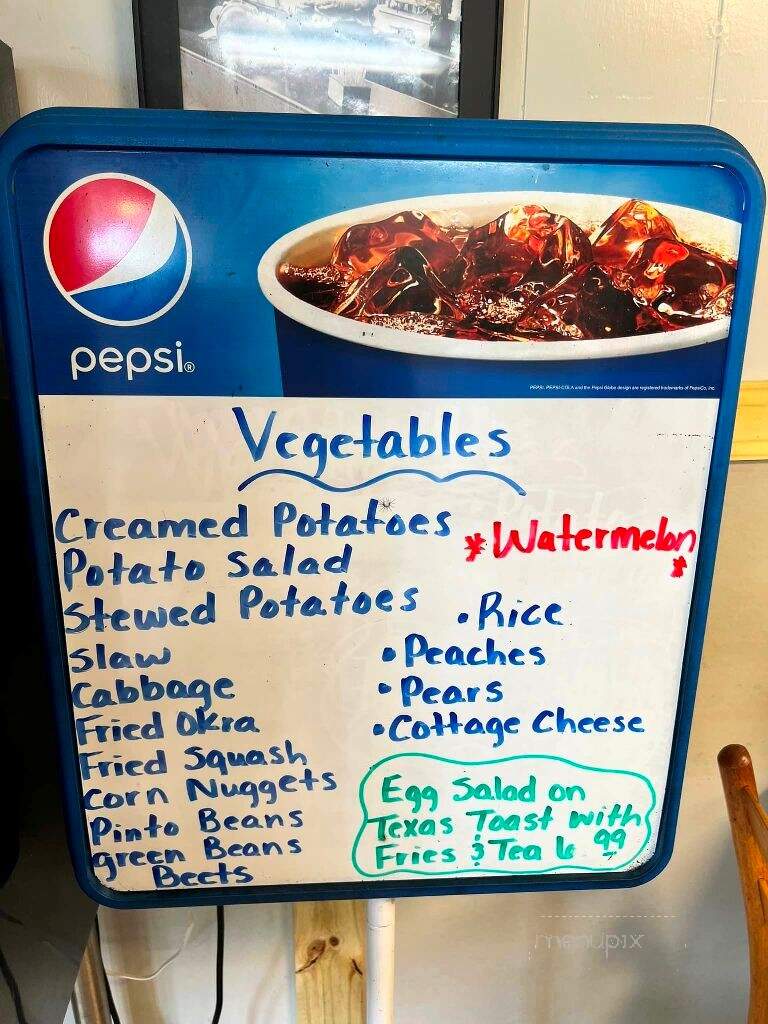 pepsi®
PEPSI, PEPSI-COLA and the Pepsi Globe design are registered trademarks of PepsiCo, Inc.
Vegetables
Creamed Potatoes
Potato Salad
Stewed Potatoes
Slaw
Cabbage
Fried Okra
Fried Squash
Corn Nuggets
Pinto Beans
green Beans
Beets
*Watermelon*
• Rice
• Peaches
• Pears
• Cottage Cheese
Egg Salad on
Texas Toast with
Fries & Tea 6 99
menupix